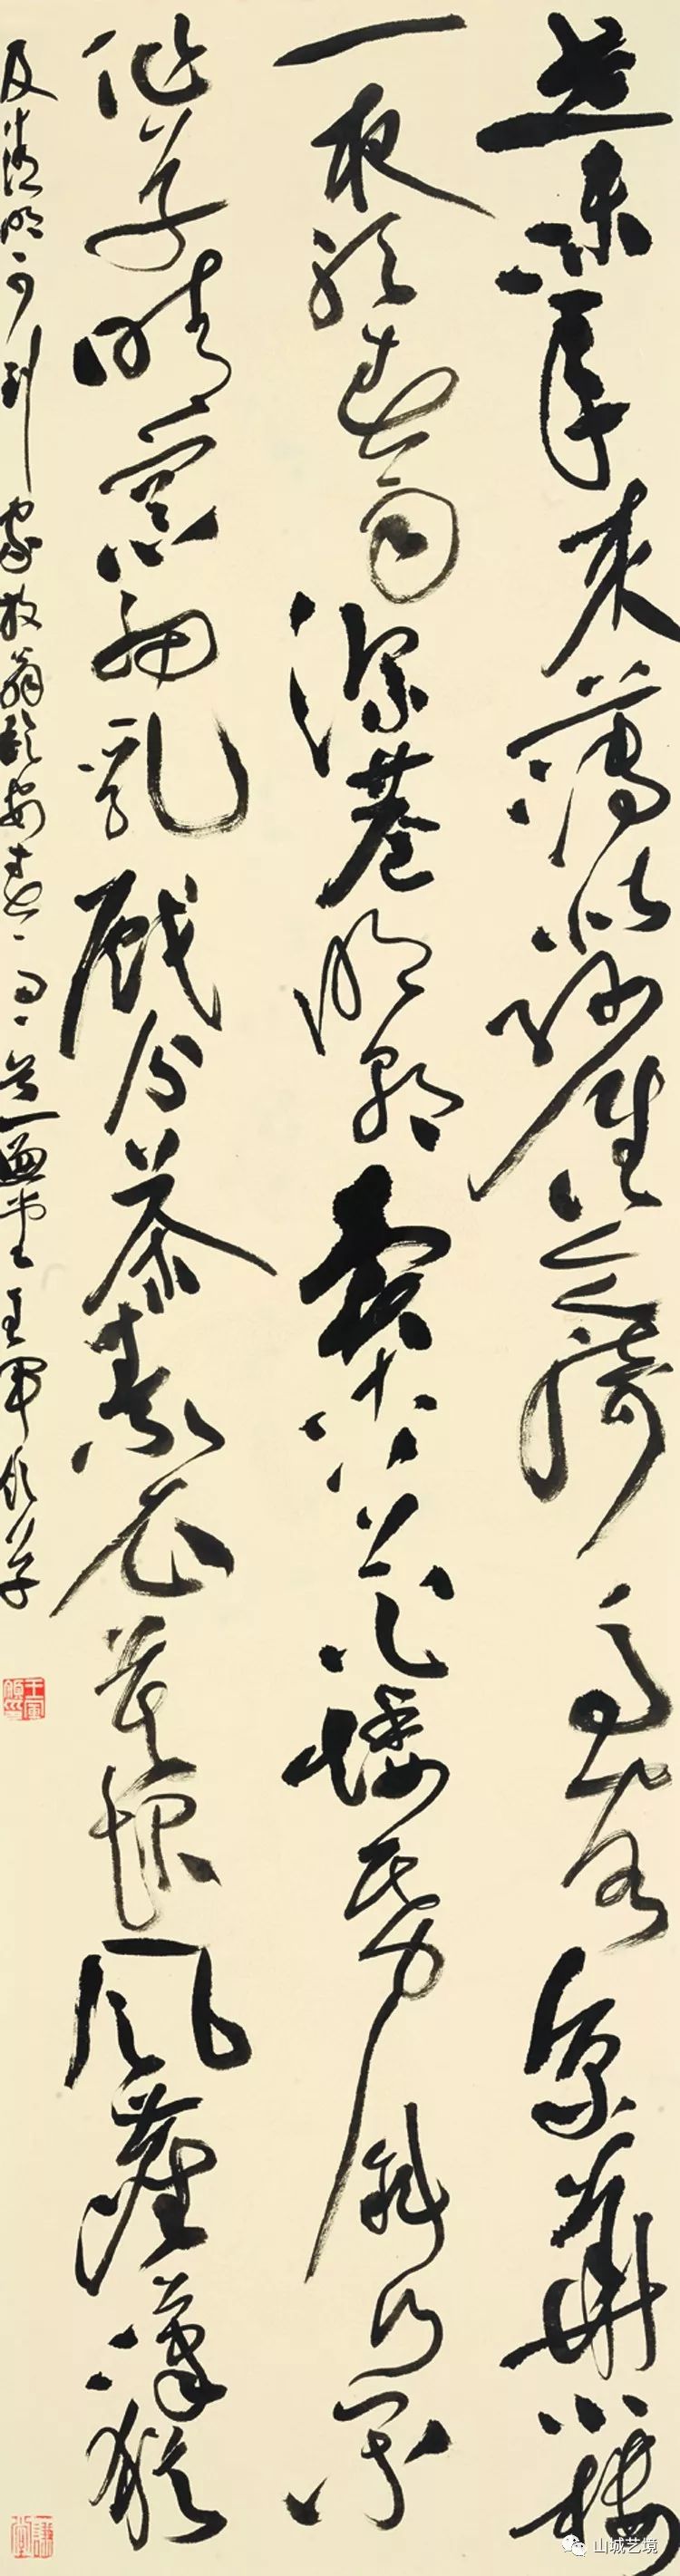 世味年来薄似纱谁令骑马客京华小楼
一夜听春雨深巷明朝卖杏花矮纸斜行闲
作草晴窗细乳戏分茶素衣莫起风尘叹犹
及清明可到家放翁临安春雨王军作草
山城艺境